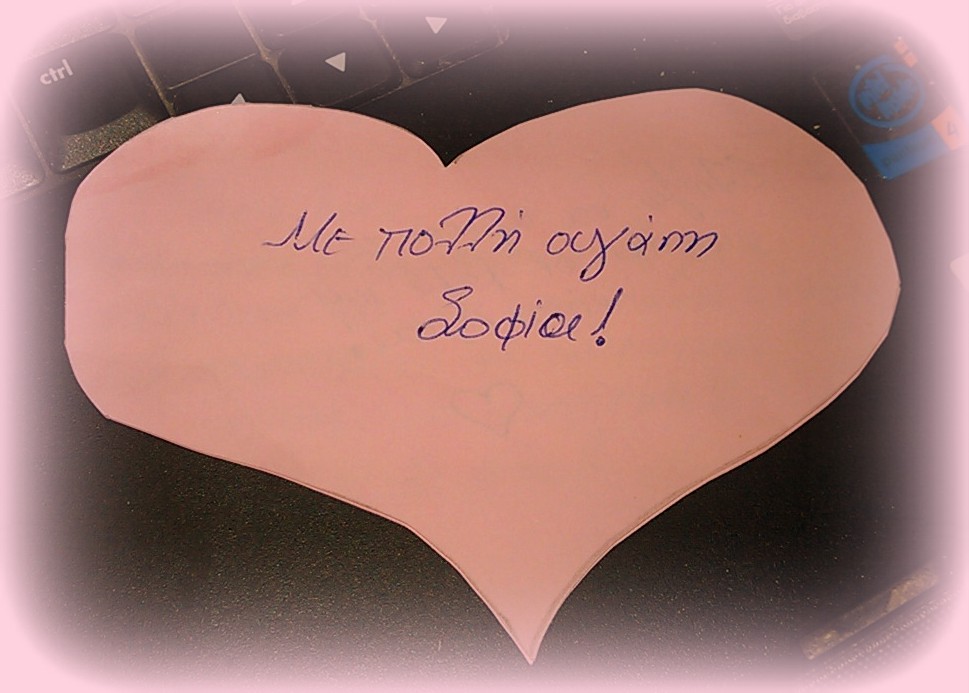 ctrl
Με πολλή αγάπη
Σοφία!